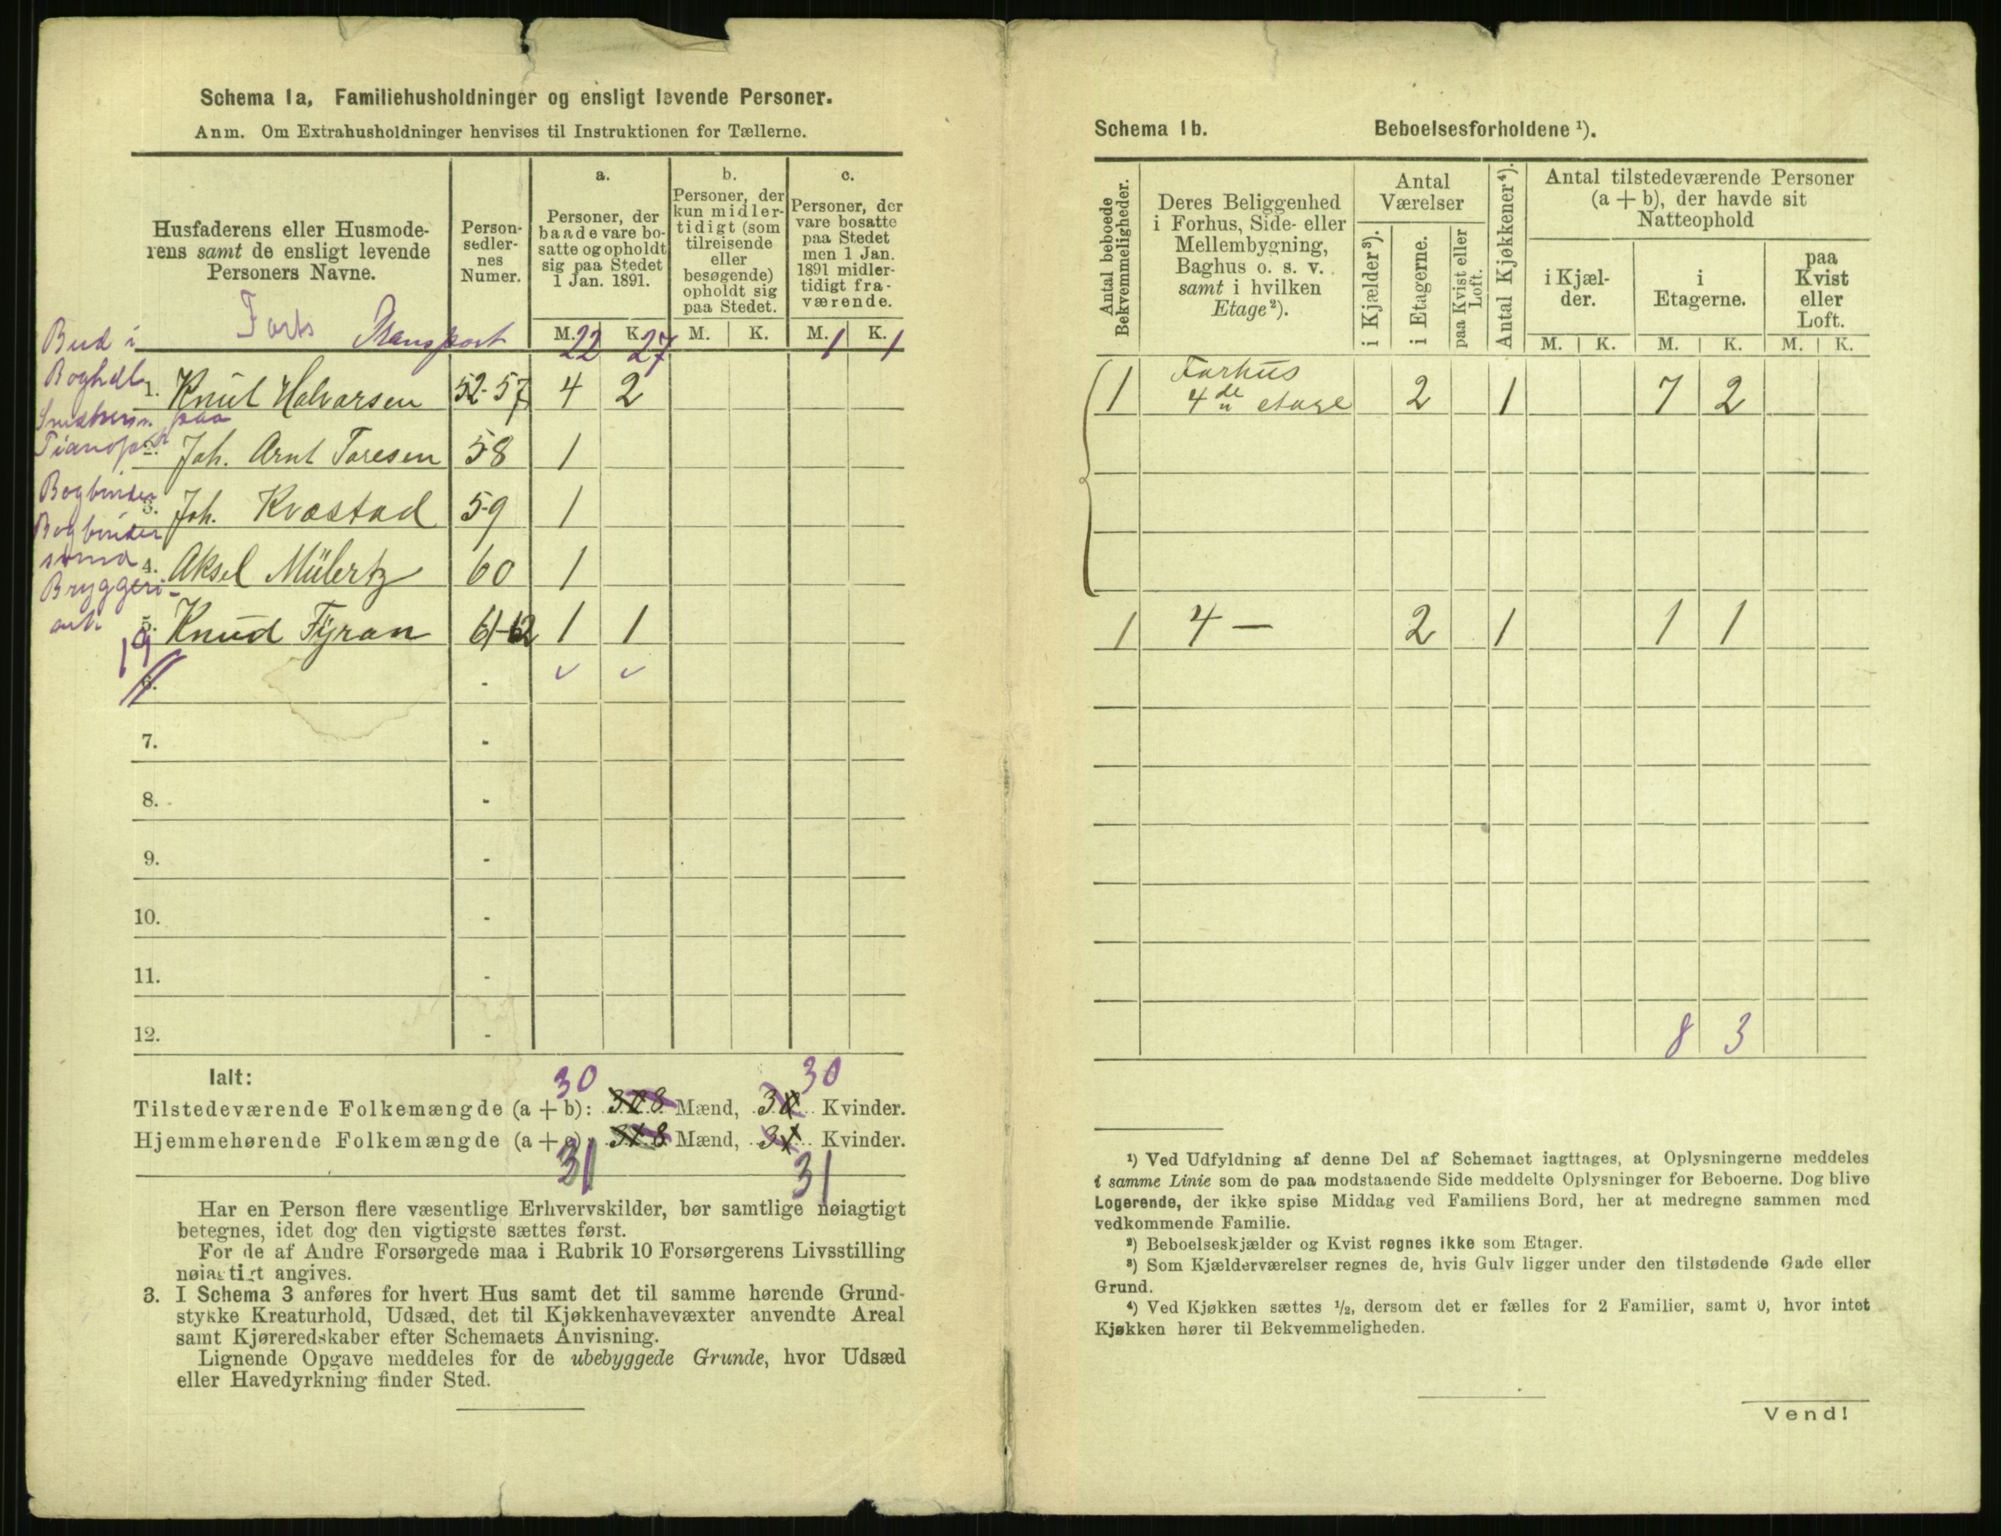 Schema 1a, Familiehusholdninger og ensligt levende Personer.
Anm. Om Extrahusholdninger henvises til Instruktionen for Tællerne.
Husfaderens eller Husmode-
rens samt de ensligt levende
Personers Navne.
Person-
sedler-
nes
Numer.
a.
Personer, der
baade vare bo-
satte og opholdt
sig paa Stedet
1 Jan. 1891.
b.
Personer, der
kun midler-
tidigt (som
tilreisende
eller
besøgende)
opholdt sig
paa Stedet.
c.
Personer, der
vare bosatte
paa Stedet
men 1 Jan.
1891 midler-
tidigt fra-
værende.
M. K. M. K. M. K.
Forts Transport 22 27 1 1
Bud i
Boghdl.
1. Knut Halvorsen 52-57 4 2
paa
2. Joh. Arnt Toresen 58 1
Bogbinder
3. Joh. Kvæstad 59 1
Bogbinder
svend
4. Aksel Mülertz 60 1
Bryggeri-
arb.
5. Knud Fyran 61-62 1 1
19
6. -
7. -
8. -
9. -
10. -
11. -
12. -
Ialt:
30 30
Tilstedeværende Folkemængde (a + b): Mænd, Kvinder.
Hjemmehørende Folkemængde (a + c): Mænd, Kvinder.
31 31
Har en Person flere væsentlige Erhvervskilder, bør samtlige nøiagtigt
betegnes, idet dog den vigtigste sættes først.
For de af Andre Forsørgede maa i Rubrik 10 Forsørgerens Livsstilling
nøiagtigt angives.
3. I Schema 3 anføres for hvert Hus samt det til samme hørende Grund-
stykke Kreaturhold, Udsæd, det til Kjøkkenhavevæxter anvendte Areal
samt Kjøreredskaber efter Schemaets Anvisning.
Lignende Opgave meddeles for de ubebyggede Grunde, hvor Udsæd
eller Havedyrkning finder Sted.
Schema 1b. Beboelsesforholdene ¹).
Antal beboede
Bekvemmeligheder.
Deres Beliggenhed
i Forhus, Side- eller
Mellembygning,
Baghus o. s. v.
samt i hvilken
Etage²).
Antal
Værelser
i Kjælder³).
i Etagerne.
paa Kvist eller
Loft.
Antal Kjøkkener⁴).
Antal tilstedeværende Personer
(a + b), der havde sit
Natteophold
i Kjæl-
der.
i
Etagerne.
paa
Kvist
eller
Loft.
M. K. M. K. M. K.
1 Forhus
4de etage 2 1 7 2
1 4 — 2 1 1 1
8 3
¹) Ved Udfyldning af denne Del af Schemaet iagttages, at Oplysningerne meddeles
i samme Linie som de paa modstaaende Side meddelte Oplysninger for Beboerne. Dog blive
Logerende, der ikke spise Middag ved Familiens Bord, her at medregne sammen med
vedkommende Familie.
²) Beboelseskjælder og Kvist regnes ikke som Etager.
³) Som Kjælderværelser regnes de, hvis Gulv ligger under den tilstødende Gade eller
Grund.
⁴) Ved Kjøkken sættes ½, dersom det er fælles for 2 Familier, samt 0, hvor intet
Kjøkken hører til Bekvemmeligheden.
Vend!